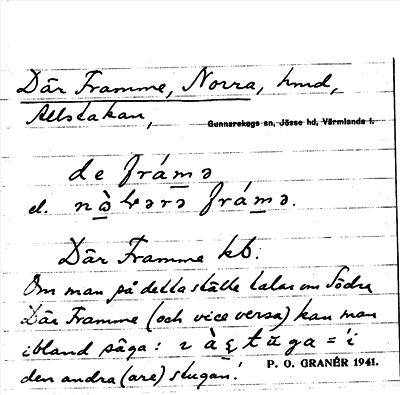 Där Framme, Norra, hmd,
Allstakan,
Gunnarskogs sn, Jösse hd, Värmlands l.
de frámə
el. nò̱rərə frámə.
Där Framme kb.
Om man på detta ställe talar om Södra
Där Framme (och vice versa) kan man
ibland säga: ɩ àʂtūga = i
den andra (are) stugan!
P. O. GRANÉR 1941.